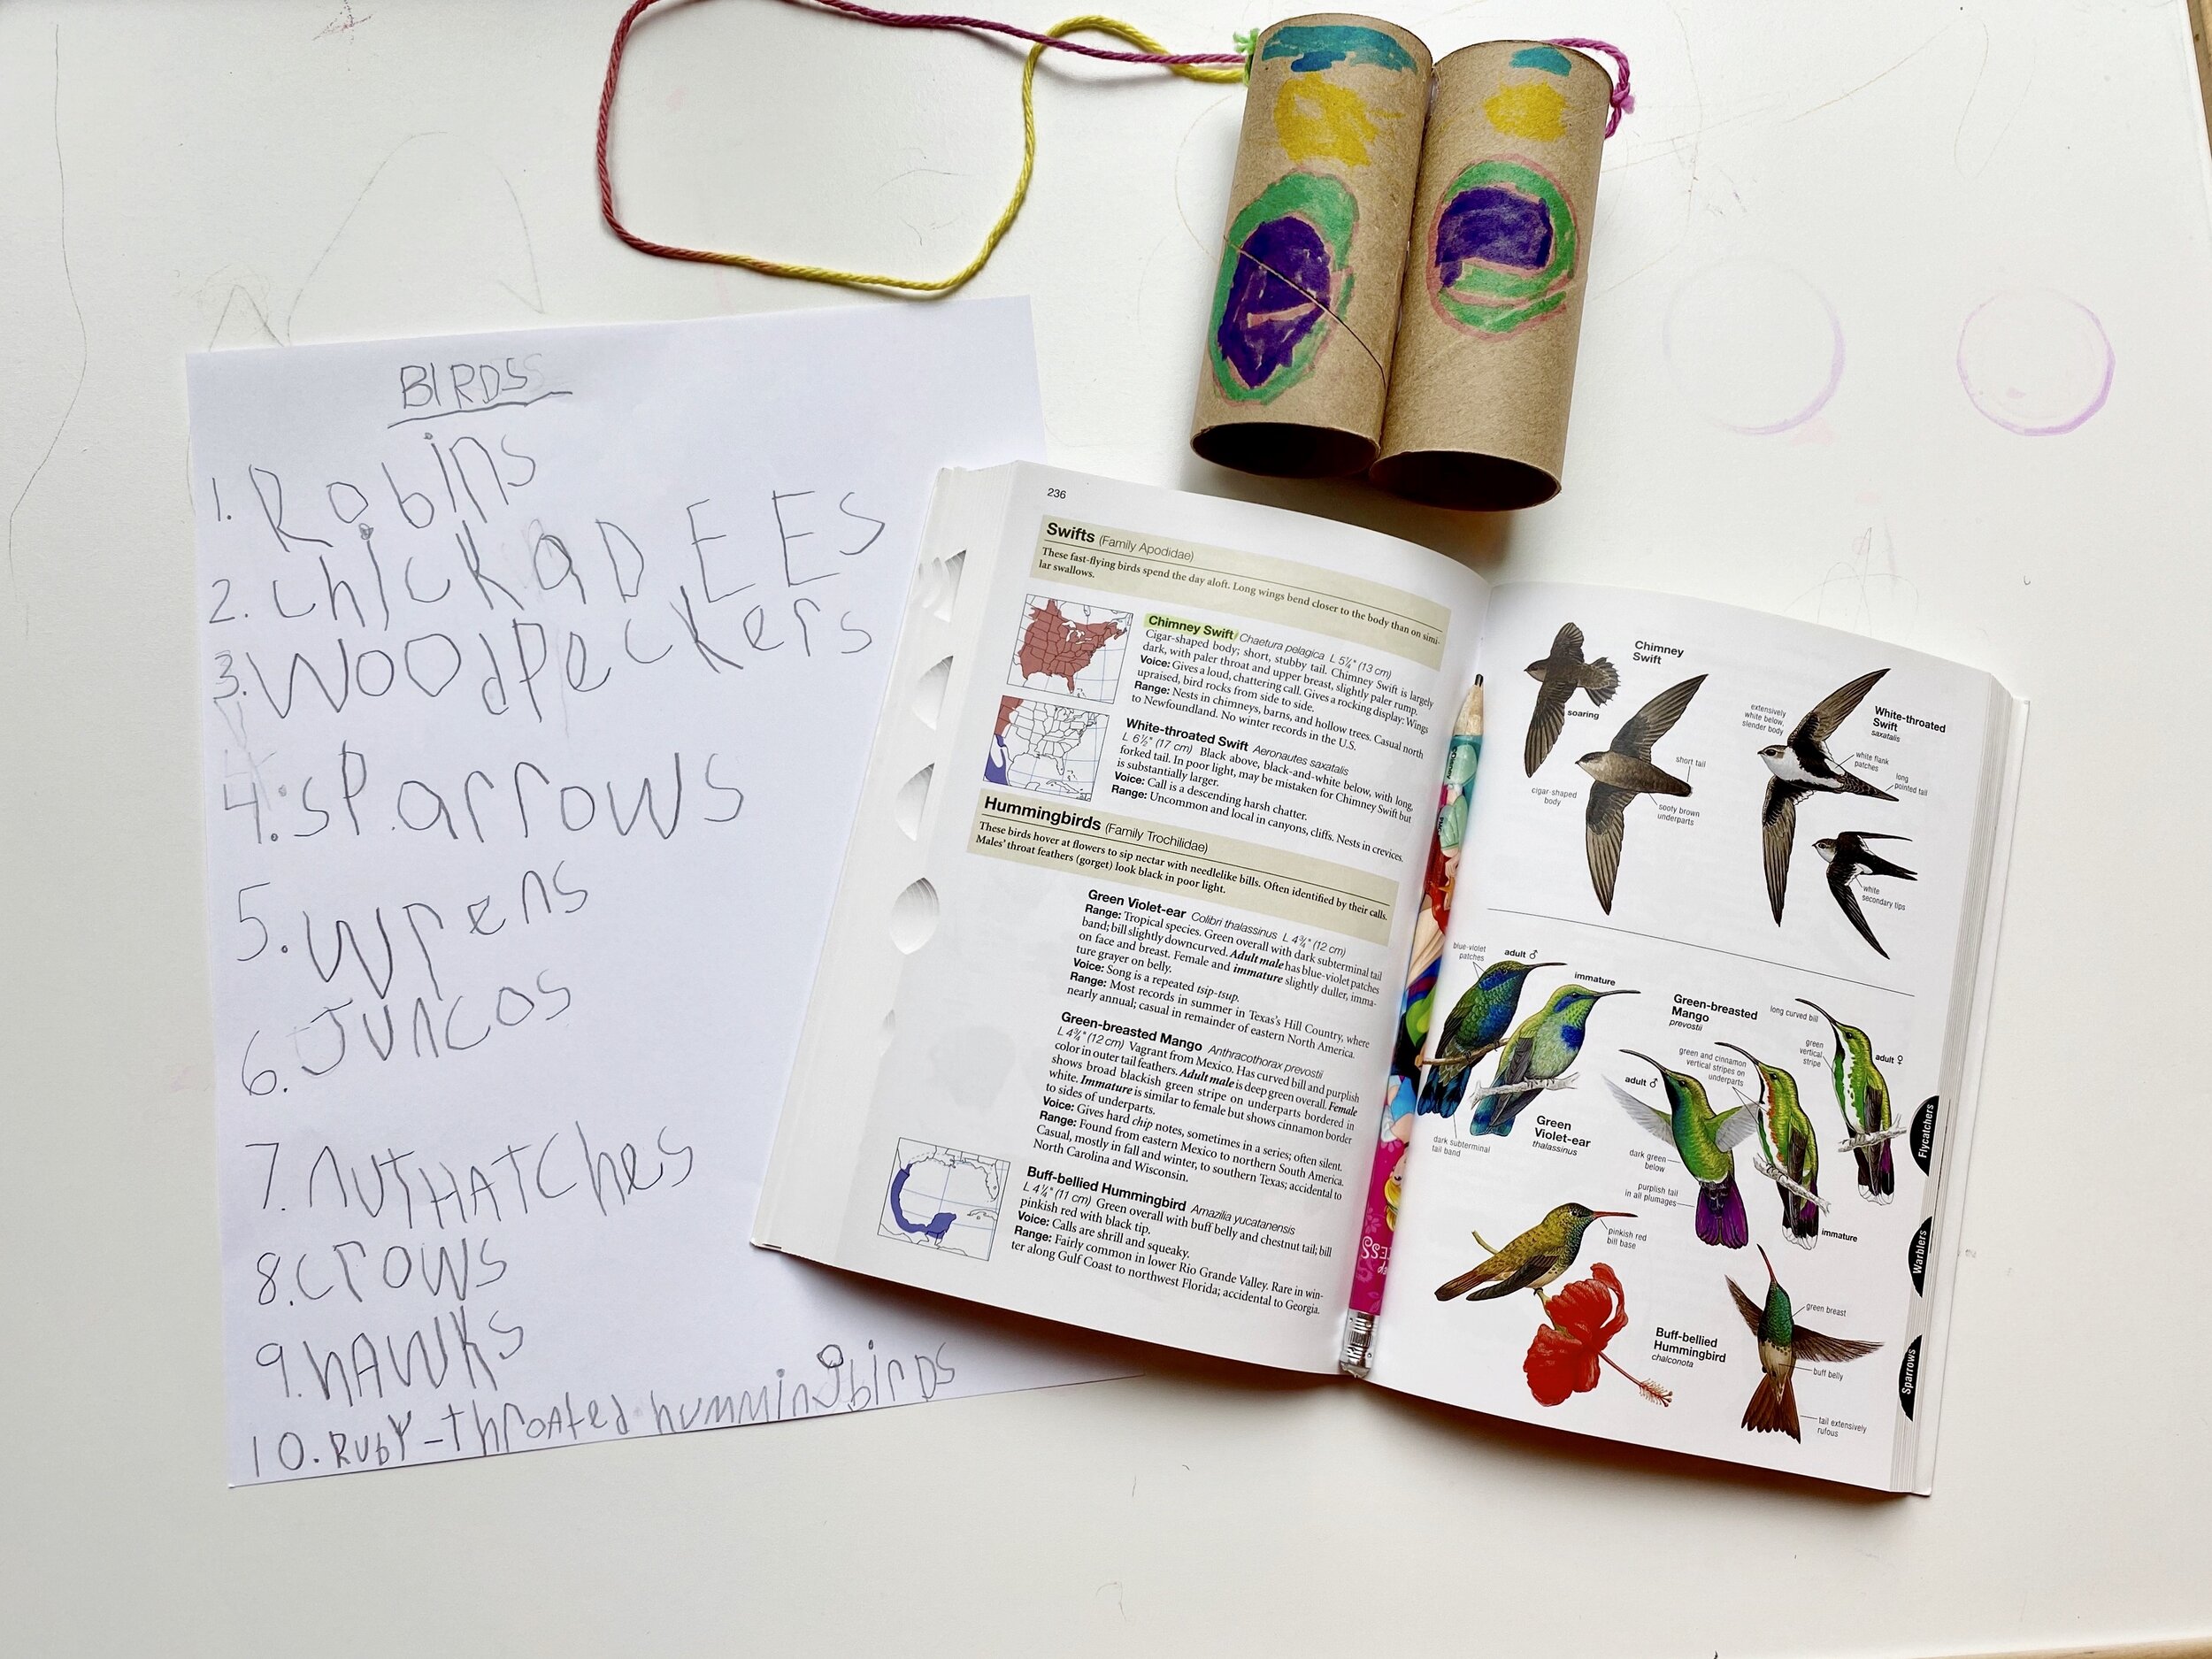 BIRDS
1. Robins
2. chickaDEES
3. WOODPeckers
4. sParrows
5. Wrens
6. Juncos
7. nuTHATChes
8. crows
9. hAWKs
10. RubY-throAted hummingbirDs
236
Swifts (Family Apodidae)
These fast-flying birds spend the day aloft. Long wings bend closer to the body than on simi-
lar swallows.
Chimney Swift Chaetura pelagica L 5¼" (13 cm)
Cigar-shaped body; short, stubby tail. Chimney Swift is largely
dark, with paler throat and upper breast, slightly paler rump.
Voice: Gives a loud, chattering call. Gives a rocking display: Wings
upraised, bird rocks from side to side.
Range: Nests in chimneys, barns, and hollow trees. Casual north
to Newfoundland. No winter records in the U.S.
White-throated Swift Aeronautes saxatalis
L 6½" (17 cm) Black above, black-and-white below, with long,
forked tail. In poor light, may be mistaken for Chimney Swift but
is substantially larger.
Voice: Call is a descending harsh chatter.
Range: Uncommon and local in canyons, cliffs. Nests in crevices.
Hummingbirds (Family Trochilidae)
These birds hover at flowers to sip nectar with needlelike bills. Often identified by their calls.
Males' throat feathers (gorget) look black in poor light.
Green Violet-ear Colibri thalassinus L 4¾" (12 cm)
Range: Tropical species. Green overall with dark subterminal tail
band; bill slightly downcurved. Adult male has blue-violet patches
on face and breast. Female and immature slightly duller, imma-
ture grayer on belly.
Voice: Song is a repeated tsip-tsup.
Range: Most records in summer in Texas's Hill Country, where
nearly annual; casual in remainder of eastern North America.
Green-breasted Mango Anthracothorax prevostii
L 4¾" (12 cm) Vagrant from Mexico. Has curved bill and purplish
color in outer tail feathers. Adult male is deep green overall. Female
shows broad blackish green stripe on underparts bordered in
white. Immature is similar to female but shows cinnamon border
to sides of underparts.
Voice: Gives hard chip notes, sometimes in a series; often silent.
Range: Found from eastern Mexico to northern South America.
Casual, mostly in fall and winter, to southern Texas; accidental to
North Carolina and Wisconsin.
Buff-bellied Hummingbird Amazilia yucatanensis
L 4¼" (11 cm) Green overall with buff belly and chestnut tail; bill
pinkish red with black tip.
Voice: Calls are shrill and squeaky.
Range: Fairly common in lower Rio Grande Valley. Rare in win-
ter along Gulf Coast to northwest Florida; accidental to Georgia.
Chimney
Swift
soaring
short tail
cigar-shaped
body
sooty brown
underparts
extensively
white below,
slender body
White-throated
Swift
saxatalis
white flank
patches
long
pointed tail
white
secondary tips
blue-violet
patches
adult ♂
immature
Green
Violet-ear
thalassinus
dark subterminal
tail band
Green-breasted
Mango
prevostii
long curved bill
green
vertical
stripe
adult ♀
green and cinnamon
vertical stripes on
underparts
adult ♂
dark green
below
purplish tail
in all plumages
immature
pinkish red
bill base
Buff-bellied
Hummingbird
chalconota
green breast
buff belly
tail extensively
rufous
Flycatchers
Warblers
Sparrows